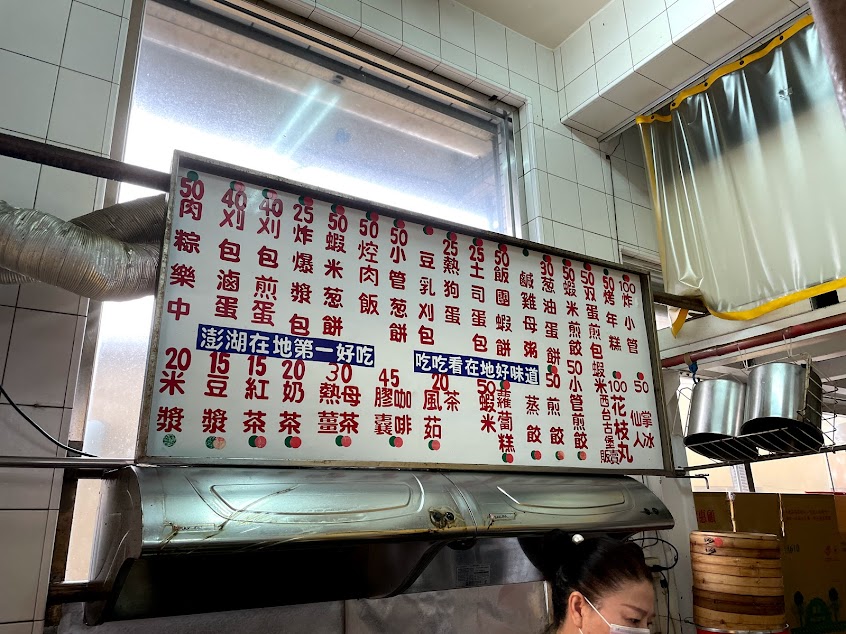 50肉粽樂中
40刈包滷蛋
40刈包煎蛋
25炸爆漿包
50蝦米葱餅
50焢肉飯
50小管葱餅
豆乳刈包
25熱狗蛋
25土司蛋包
50飯團蝦餅
鹹雞母粥
30葱油蛋餅
50蝦米煎餃
50双蛋煎包蝦米
50烤年糕
100炸小管
澎湖在地第一好吃
吃吃看在地好味道
20米漿
15豆漿
15紅茶
20奶茶
30熱母薑茶
45膠囊咖啡
20風茹茶
50蝦米蘿蔔糕
50蒸餃
50小管煎餃
西台古堡販賣
100花枝丸
50仙人掌冰